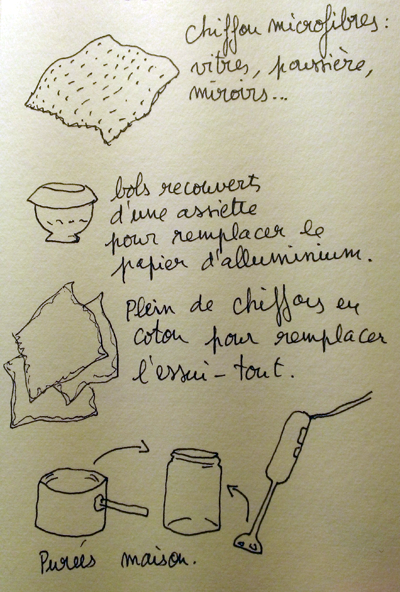 chiffon microfibres :
vitres, poussière,
miroirs...
bols recouverts
d'une assiette
pour remplacer le
papier d'alluminium.
Plein de chiffons en
coton pour remplacer
l'essui-tout.
Purées maison.